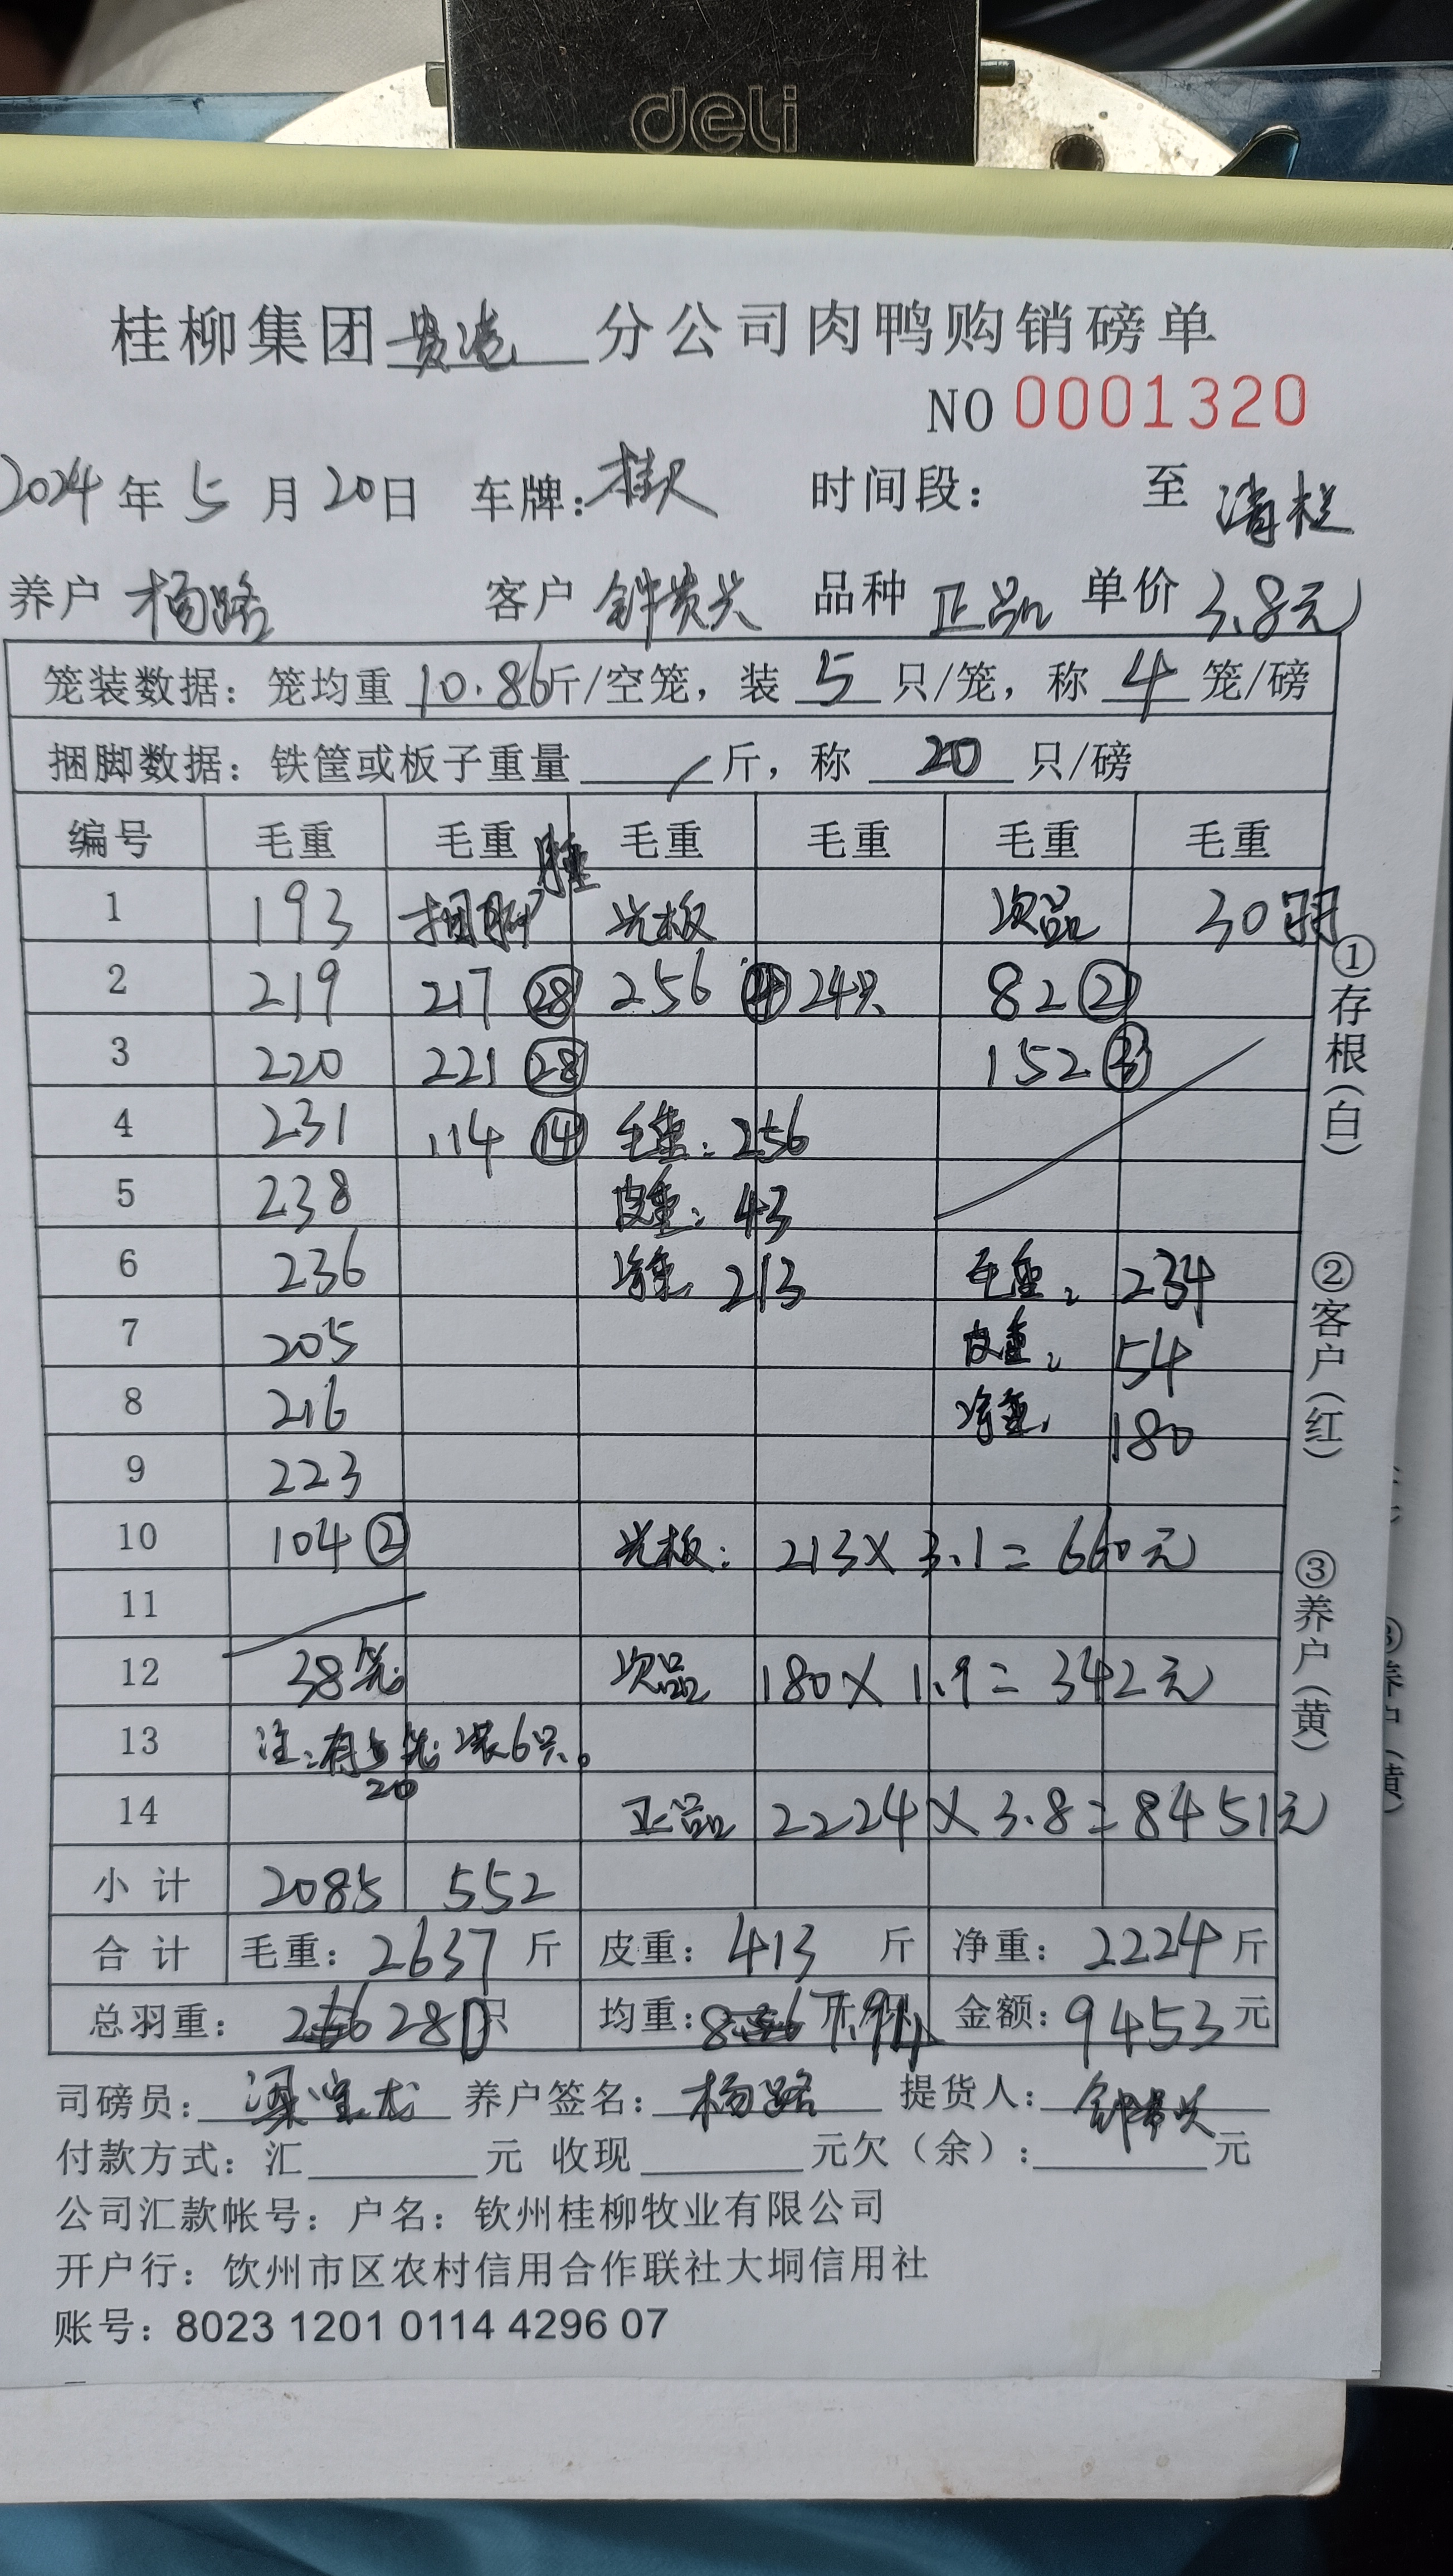 deli
桂柳集团贵港分公司肉鸭购销磅单
NO 0001320
2024年5月20日 车牌: 时间段： 至 清栏
养户 杨路 客户 钟贵兴 品种 正品 单价 3.8元
笼装数据：笼均重 10.86 斤/空笼，装 5 只/笼，称 4 笼/磅
捆脚数据：铁筐或板子重量 / 斤，称 20 只/磅
编号 毛重 毛重 毛重 毛重 毛重 毛重
1 193 捆脚 肿 光板 次品 30羽
2 219 217 28 256 ④ 24只 82 ②
3 220 221 28 152 ③
4 231 114 14 毛重：256
5 238 皮重：43
6 236 净重：213 毛重：234
7 205 皮重：54
8 216 净重：180
9 223
10 104 ② 光板：213×3.1=660元
11
12 38笼 次品 180×1.9=342元
13 注：有 笼 装6只。
20
14 正品 2224×3.8=8451元
小计 2085 552
合计 毛重：2637 斤 皮重：413 斤 净重：2224 斤
总羽重： 280只 均重： 7.94 金额：9453元
司磅员： 养户签名：杨路 提货人：钟贵兴
付款方式：汇 元 收现 元欠（余）： 元
公司汇款帐号：户名：钦州桂柳牧业有限公司
开户行：饮州市区农村信用合作联社大垌信用社
账号：8023 1201 0114 4296 07
①存根(白)
②客户(红)
③养户(黄)
③养户(黄)